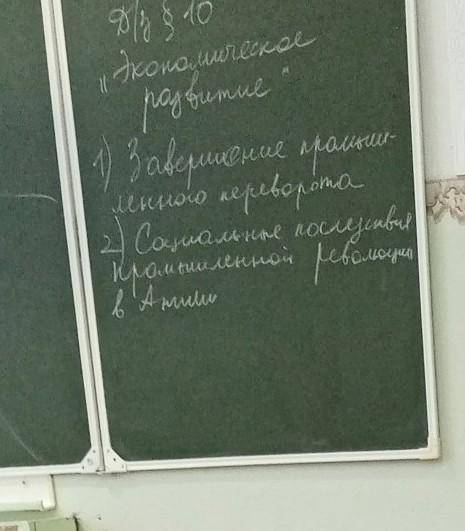 Д/з § 10
"Экономическое
развитие"
1) Завершение промыш-
ленного переворота
2) Социальные последствия
промышленной революции
в Англии